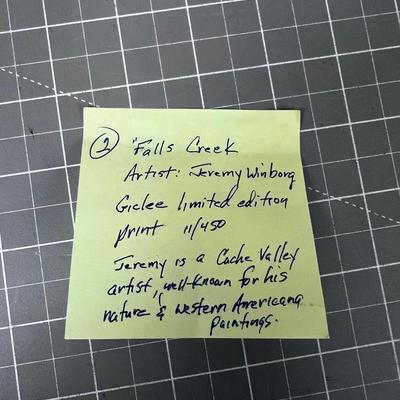 ② "Falls Creek
Artist: Jeremy Winborg
Giclee limited edition
print 11/450
Jeremy is a Cache Valley
artist, well-known for his
nature & western Americana
paintings.